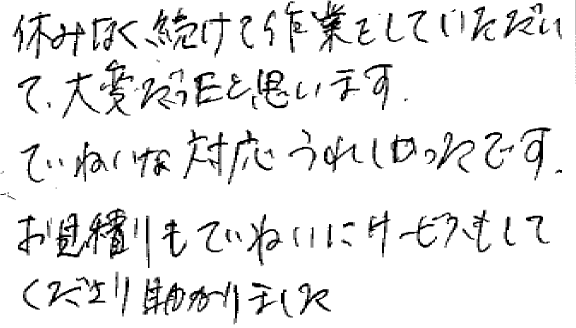 休みなく、続けて作業をしていただい
て、大変だったと思います。
ていねいな対応うれしかったです。
お見積りもていねいにサービスもして
くださり助かりました